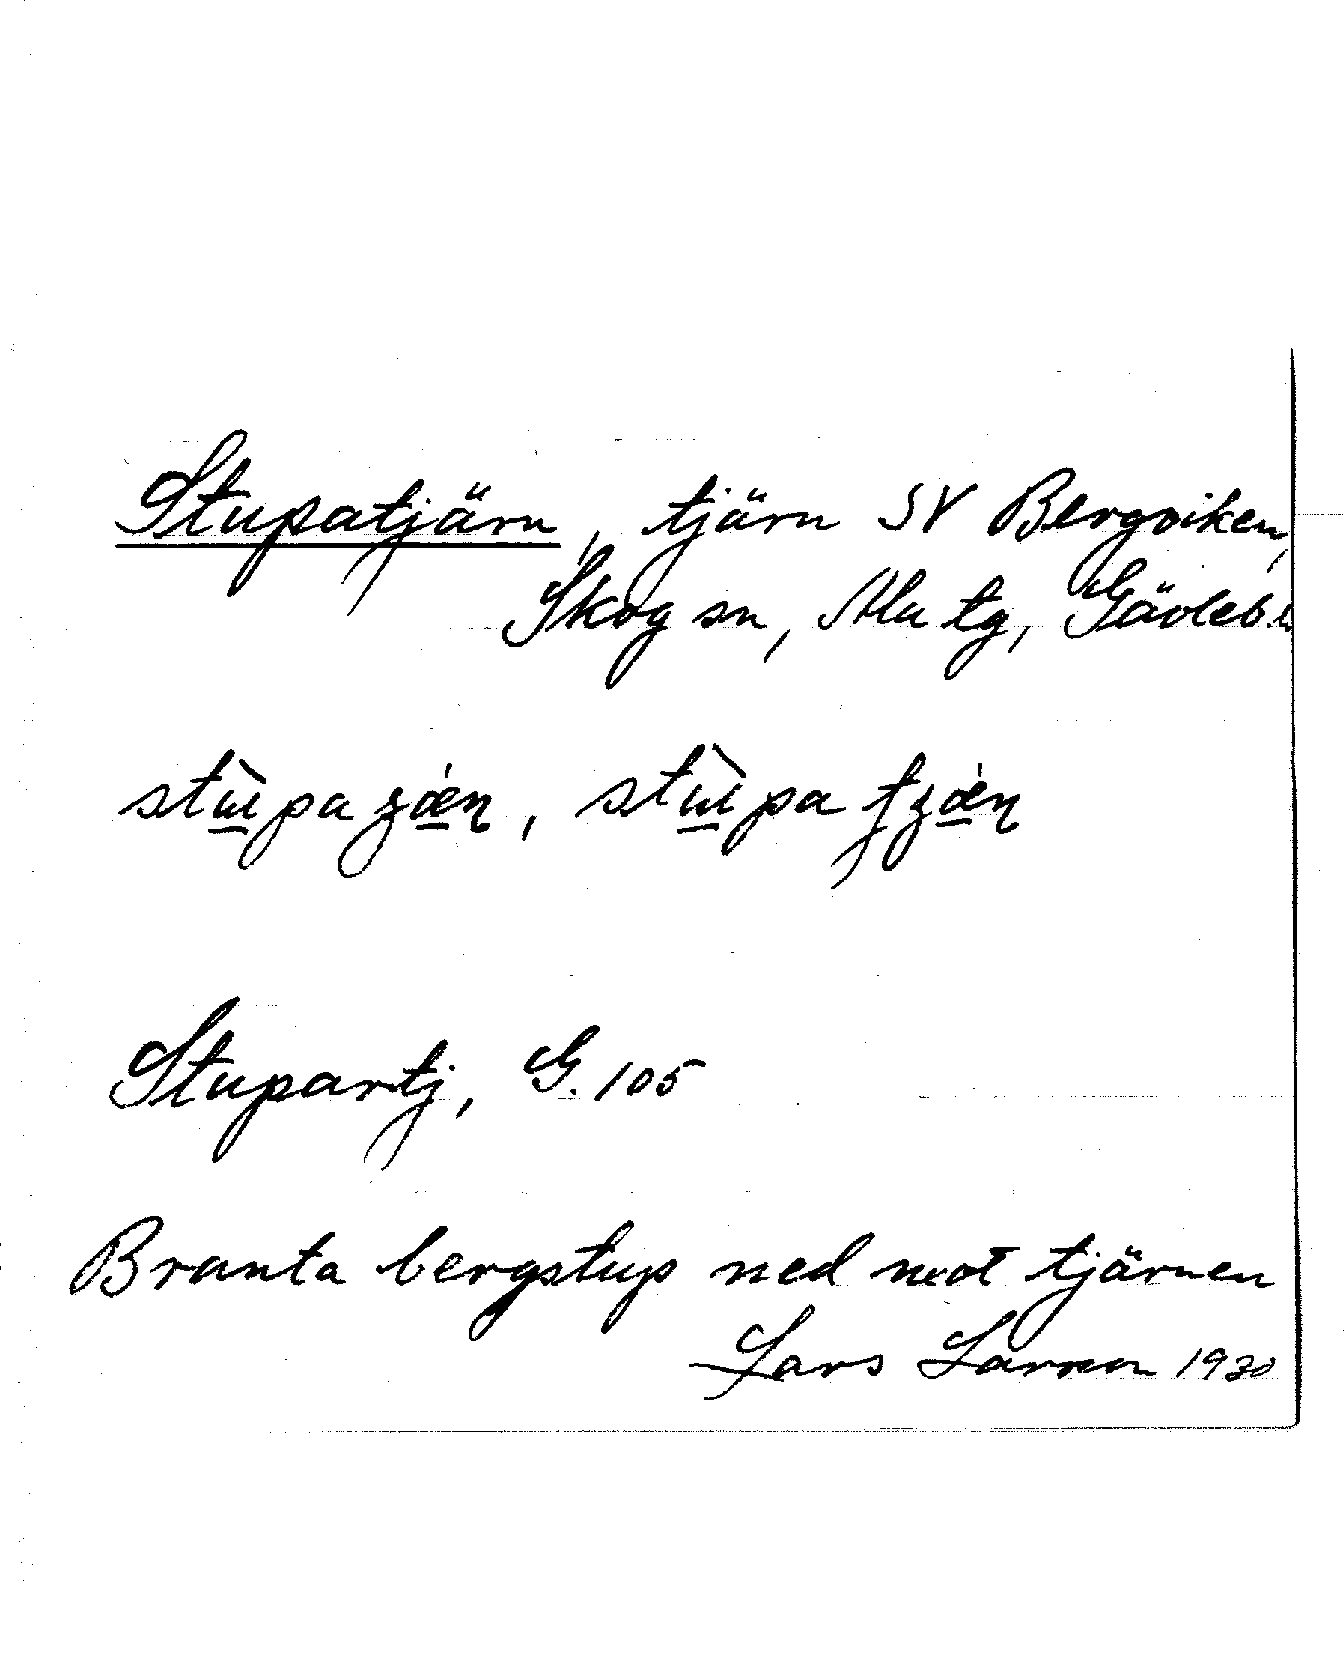 Stupatjärn, tjärn SV Bergviken,
Skog sn, Ala tg, Gävleb. l
stɯ̀paʒǽn, stɯ̀patʒǽn
Stupartj, G. 105
Branta bergstup ned mot tjärnen
Lars Larsson 1930